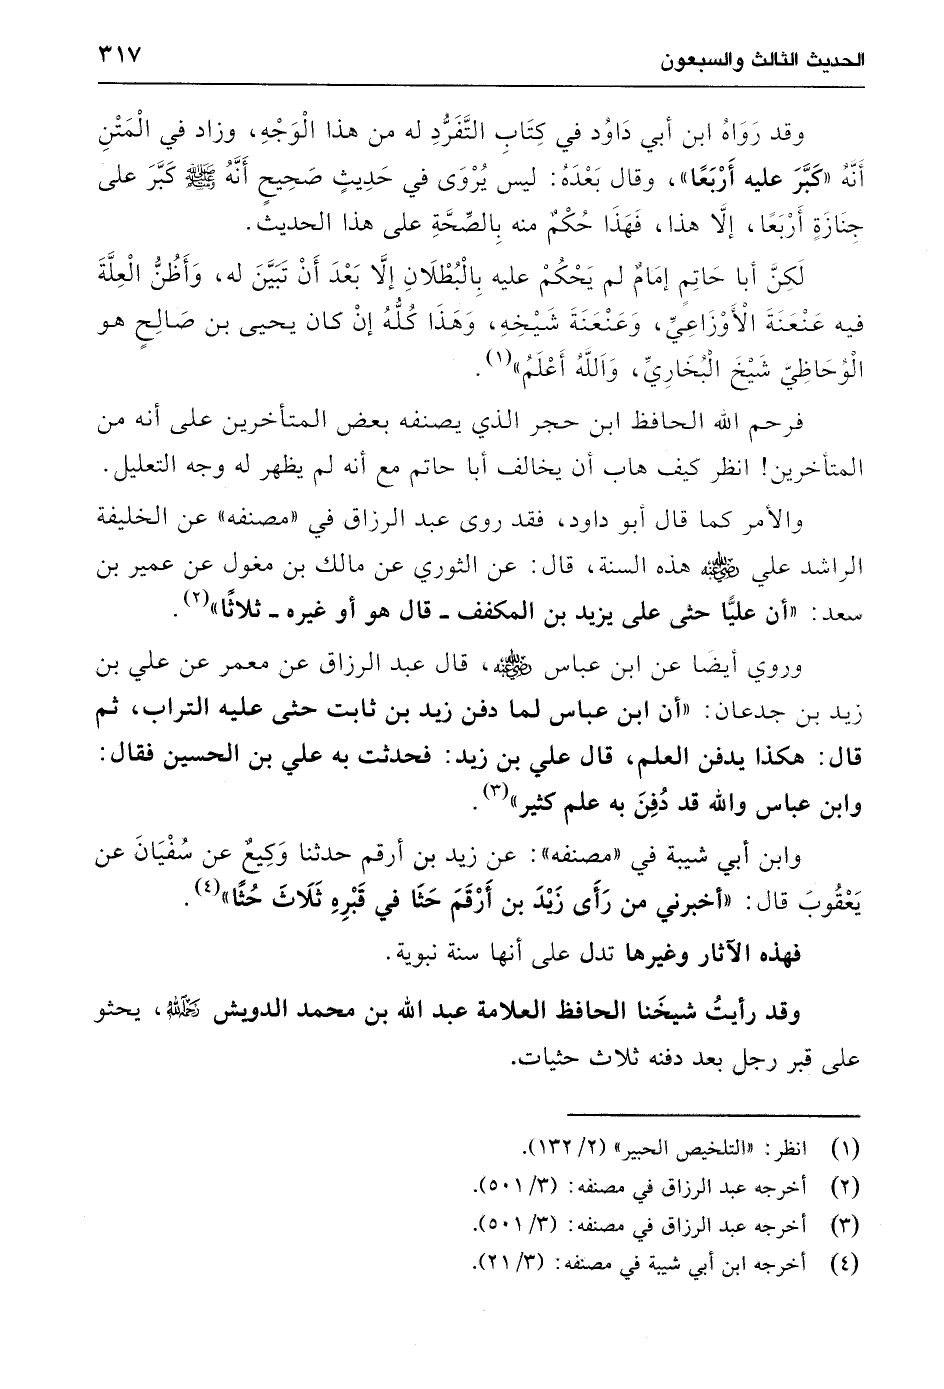 الحديث الثالث والسبعون ٣١٧
وقد رَوَاهُ ابن أبي دَاوُد في كِتَابِ التَّفَرُّدِ له من هذا الْوَجْهِ، وزاد في الْمَتْنِ
أَنَّهُ «كَبَّرَ عليه أَرْبَعًا»، وقال بَعْدَهُ: ليس يُرْوَى في حَدِيثٍ صَحِيحٍ أَنَّهُ ﷺ كَبَّرَ على
جِنَازَةٍ أَرْبَعًا، إلَّا هذا، فَهَذَا حُكْمٌ منه بِالصِّحَّةِ على هذا الحديث.
لَكِنَّ أبا حَاتِمٍ إمَامٌ لم يَحْكُمْ عليه بِالْبُطْلَانِ إلَّا بَعْدَ أَنْ تَبَيَّنَ له، وَأَظُنُّ الْعِلَّةَ
فيه عَنْعَنَةَ الْأَوْزَاعِيِّ، وَعَنْعَنَةَ شَيْخِهِ، وَهَذَا كُلُّهُ إنْ كان يحيى بن صَالِحٍ هو
الْوُحَاظِيّ شَيْخَ الْبُخَارِيِّ، وَاَللَّهُ أَعْلَمُ»(١).
فرحم الله الحافظ ابن حجر الذي يصنفه بعض المتأخرين على أنه من
المتأخرين! انظر كيف هاب أن يخالف أبا حاتم مع أنه لم يظهر له وجه التعليل.
والأمر كما قال أبو داود، فقد روى عبد الرزاق في «مصنفه» عن الخليفة
الراشد علي رضي الله عنه هذه السنة، قال: عن الثوري عن مالك بن مغول عن عمير بن
سعد: «أن عليًّا حثى على يزيد بن المكفف ـ قال هو أو غيره ـ ثلاثًا»(٢).
وروي أيضًا عن ابن عباس رضي الله عنه، قال عبد الرزاق عن معمر عن علي بن
زيد بن جدعان: «أن ابن عباس لما دفن زيد بن ثابت حثى عليه التراب، ثم
قال: هكذا يدفن العلم، قال علي بن زيد: فحدثت به علي بن الحسين فقال:
وابن عباس والله قد دُفِنَ به علم كثير»(٣).
وابن أبي شيبة في «مصنفه»: عن زيد بن أرقم حدثنا وَكِيعٌ عن سُفْيَانَ عن
يَعْقُوبَ قال: «أخبرني من رَأَى زَيْدَ بن أَرْقَمَ حَثَا في قَبْرِهِ ثَلَاثَ حُثًا»(٤).
فهذه الآثار وغيرها تدل على أنها سنة نبوية.
وقد رأيتُ شيخَنا الحافظ العلامة عبد الله بن محمد الدويش رحمه الله، يحثو
على قبر رجل بعد دفنه ثلاث حثيات.
(١) انظر: «التلخيص الحبير» (٢/ ١٣٢).
(٢) أخرجه عبد الرزاق في مصنفه: (٣/ ٥٠١).
(٣) أخرجه عبد الرزاق في مصنفه: (٣/ ٥٠١).
(٤) أخرجه ابن أبي شيبة في مصنفه: (٣/ ٢١).